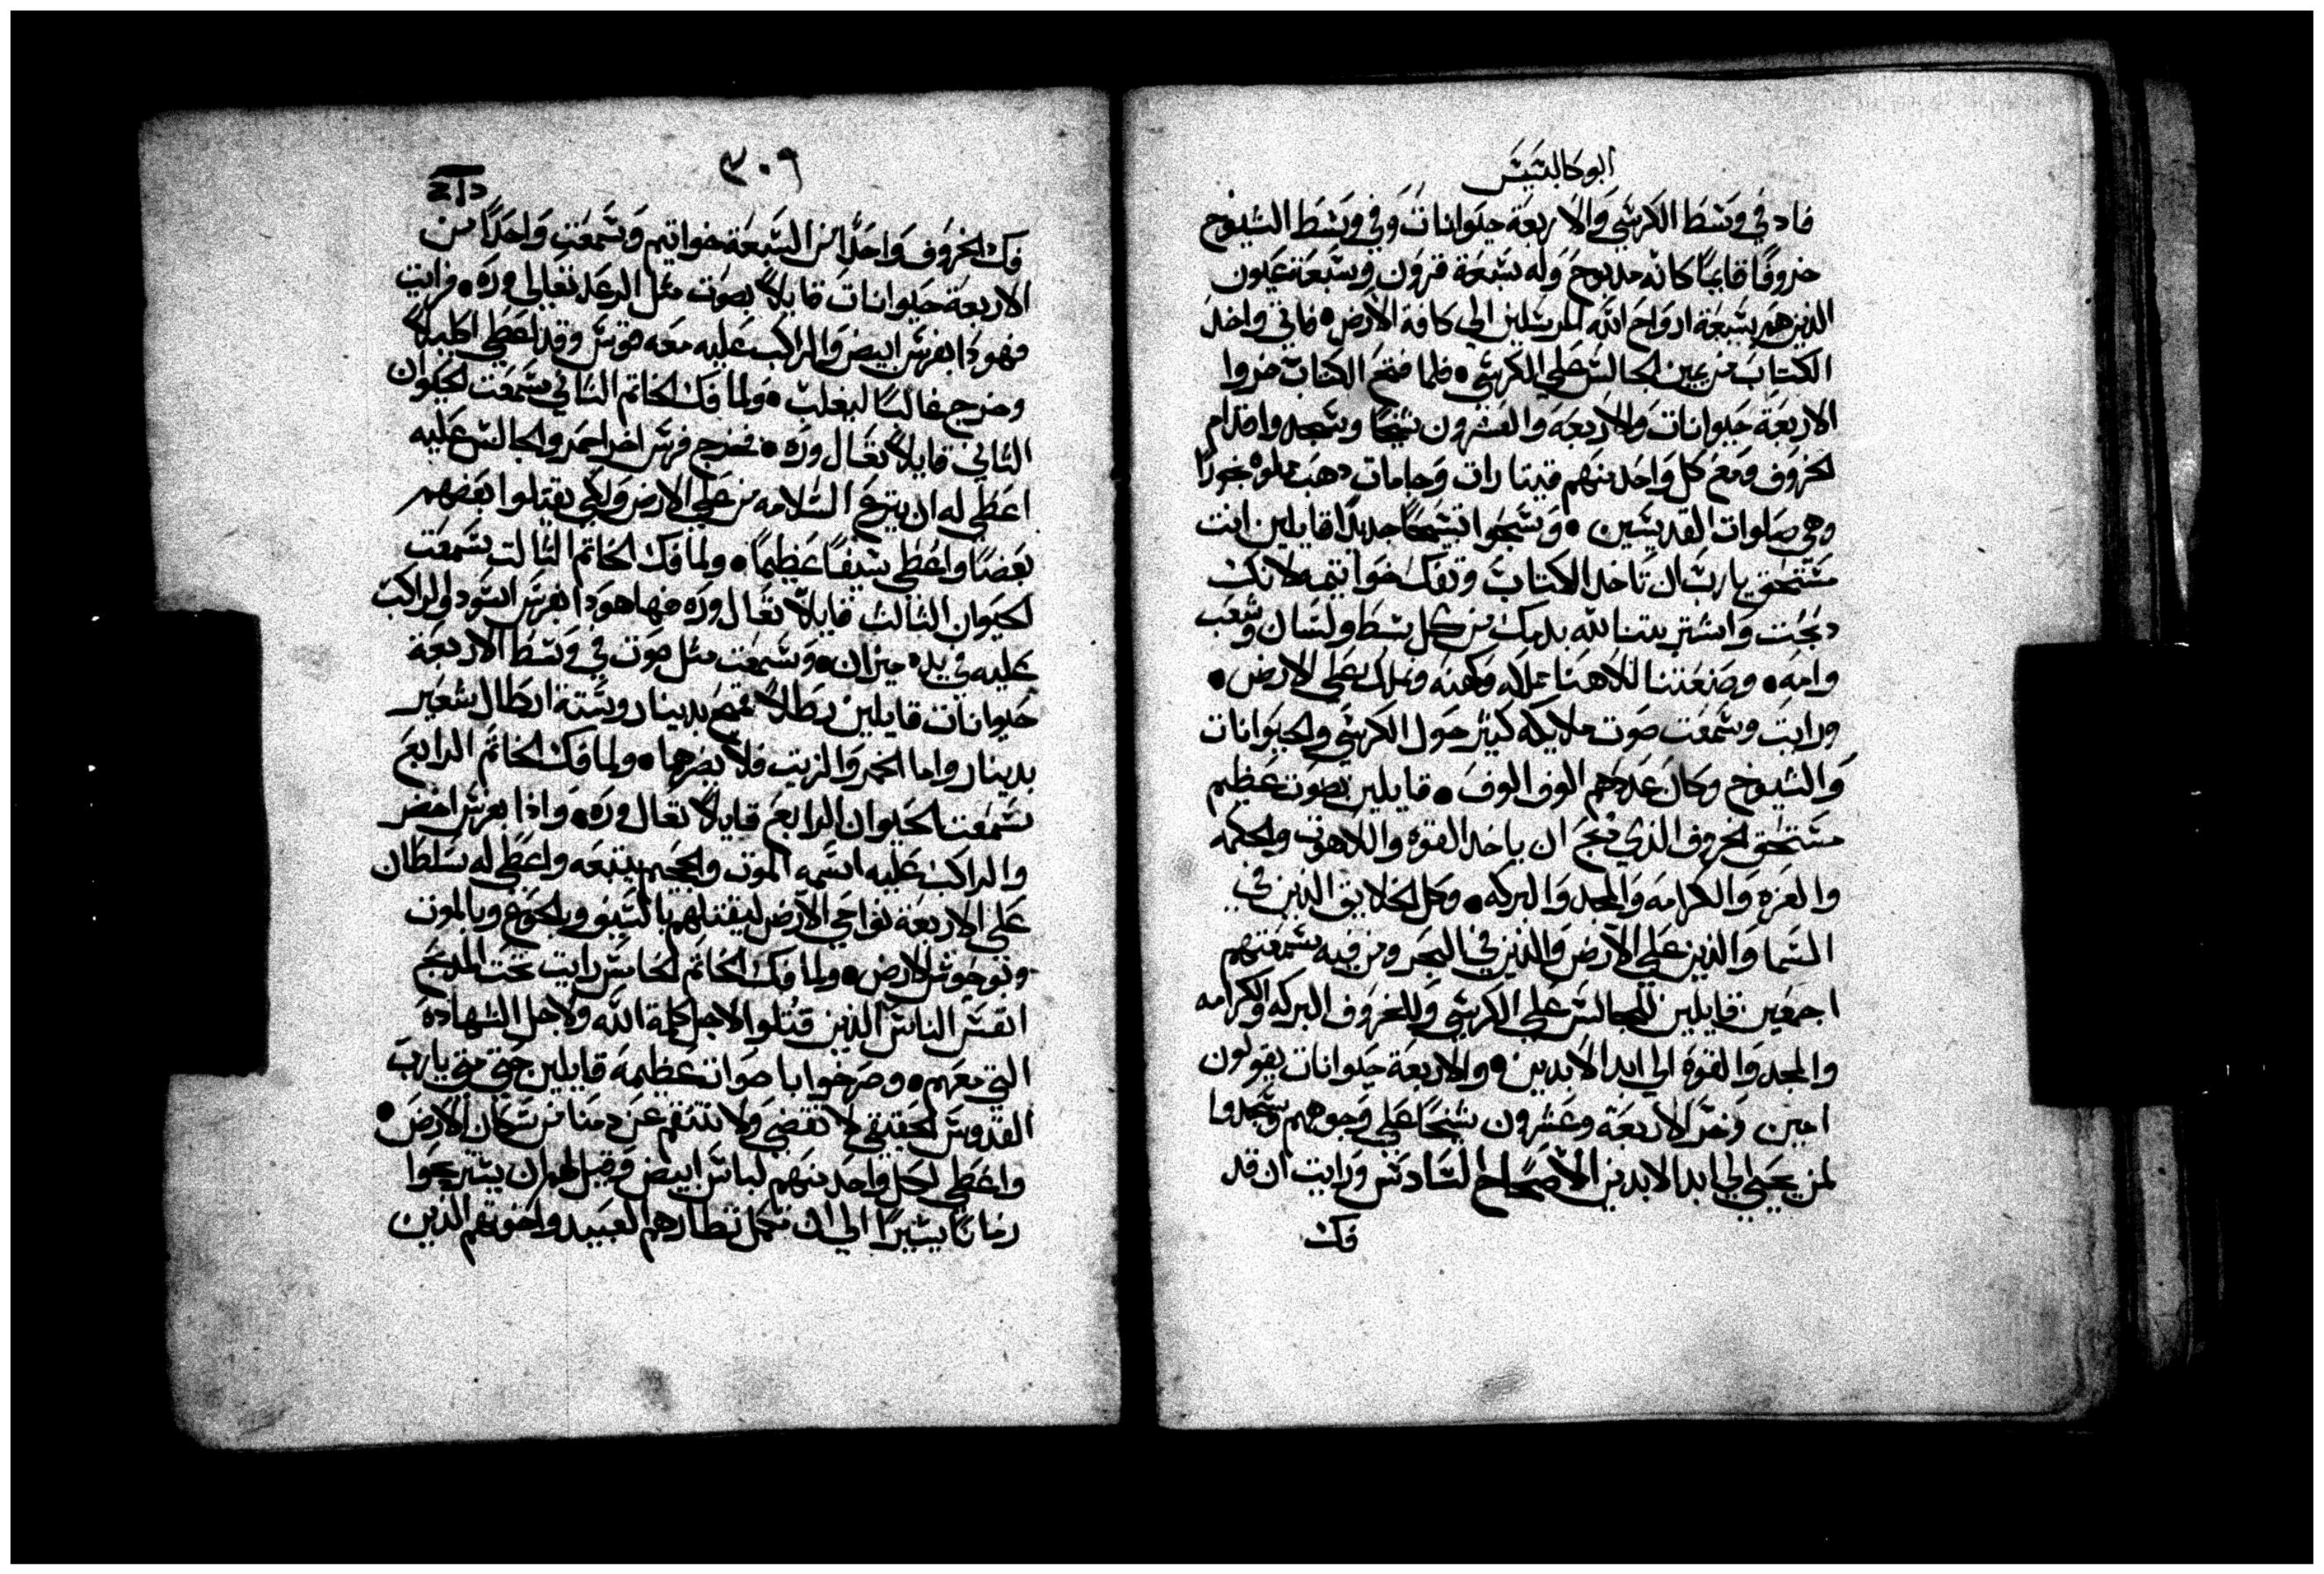 ابوكالبتيس
فاد في وسط الكرسي والاربعة حيوانات وفي وسط الشيوخ
خروفًا قايمًا كانه مدبوح وله سبعة قرون وسبعة عيون
الذين هم سبعة ارواح الله المرسلين الي كافة الارض • فاتي واخد
الكتاب من يمين الجالس علي الكرسي • فلما فتح الكتاب خروا
الاربعة حيوانات والاربعة والعشرون شيخًا وسجدوا قدام
الخروف ومع كل واحد منهم قيتارات وجامات دهب مملوه بخورًا
وهي صلوات القديسين • وسبحوا تسبيحًا جديدًا قايلين انت
مستحق يارب ان تاخد الكتاب وتفك خواتيمه لانك
دبحت واشتريتنا لله بدمك من كل سبط ولسان وشعب
وامه • وصنعتنا لالاهنا مملكه وكهنه ونملك علي الارض •
ورايت وسمعت صوت ملايكه كتير حول الكرسي والحيوانات
والشيوخ وكان عددهم الوف الوف • قايلين بصوت عظيم
مستحق الخروف الذي دبح ان ياخد القوة واللاهوت والحكمه
والعزه والكرامه والمجد والبركه • وكل الخلايق الذين في
السما والذين علي الارض والذين في البحر ومن فيه سمعتهم
اجمعين قايلين للجالس علي الكرسي وللخروف البركه والكرامه
والمجد والقوة الي ابد الابدين • والاربعة حيوانات يقولون
امين وخر الاربعة وعشرون شيخًا علي وجوههم وسجدوا
لمن يحيي الي ابد الابدين الاصحاح السادس ورايت ان قد
فك
٣٠٩
فك الخروف واحدًا من السبعة خواتيم وسمعت واحدًا من
الاربعة حيوانات قايلاً بصوت مثل الرعد تعالي وره • فرايت
فهودا بفرس ابيض والراكب عليه معه قوس وقد اعطي اكليلاً
وخرج غالبًا ليغلب • ولما فك الخاتم التاني سمعت الحيوان
التاني قايلاً تعال وره • فخرج فرس اخر احمر والجالس عليه
اعطي له ان ينزع السلامه من علي الارض ولكي يقتلوا بعضهم
بعضًا واعطي سيفًا عظيمًا • ولما فك الخاتم التالت سمعت
الحيوان التالت قايلاً تعال وره فها هودا بفرس اسود والراكب
عليه في يده ميزان • وسمعت مثل صوت في وسط الاربعة
حيوانات قايلين رطلاً قمح بدينار وستة ارطال شعير
بدينار واما الخمر والزيت فلا تضرهما • ولما فك الخاتم الرابع
سمعت الحيوان الرابع قايلاً تعال وره • واذا بفرس اخضر
والراكب عليه اسمه الموت والجحيم يتبعه واعطي له سلطان
علي الاربعة نواحي الارض ليقتلهم بالسيف وبالجوع وبالموت
وبوحوش الارض • ولما فك الخاتم الخامس رايت تحت المدبح
انفس الناس الذين قتلوا لاجل كلمة الله ولاجل الشهادة
التي معهم • وصرخوا باصوات عظيمة قايلين حتي متي يارب
القدوس الحقيقي لا تقضي ولا تنتقم عن دمنا من سكان الارض •
واعطي لكل واحد منهم لباس ابيض وقيل لهم ان يستريحوا
زمانًا يسيرًا الي ان تكمل نظارهم العبيد واخوتهم الذين